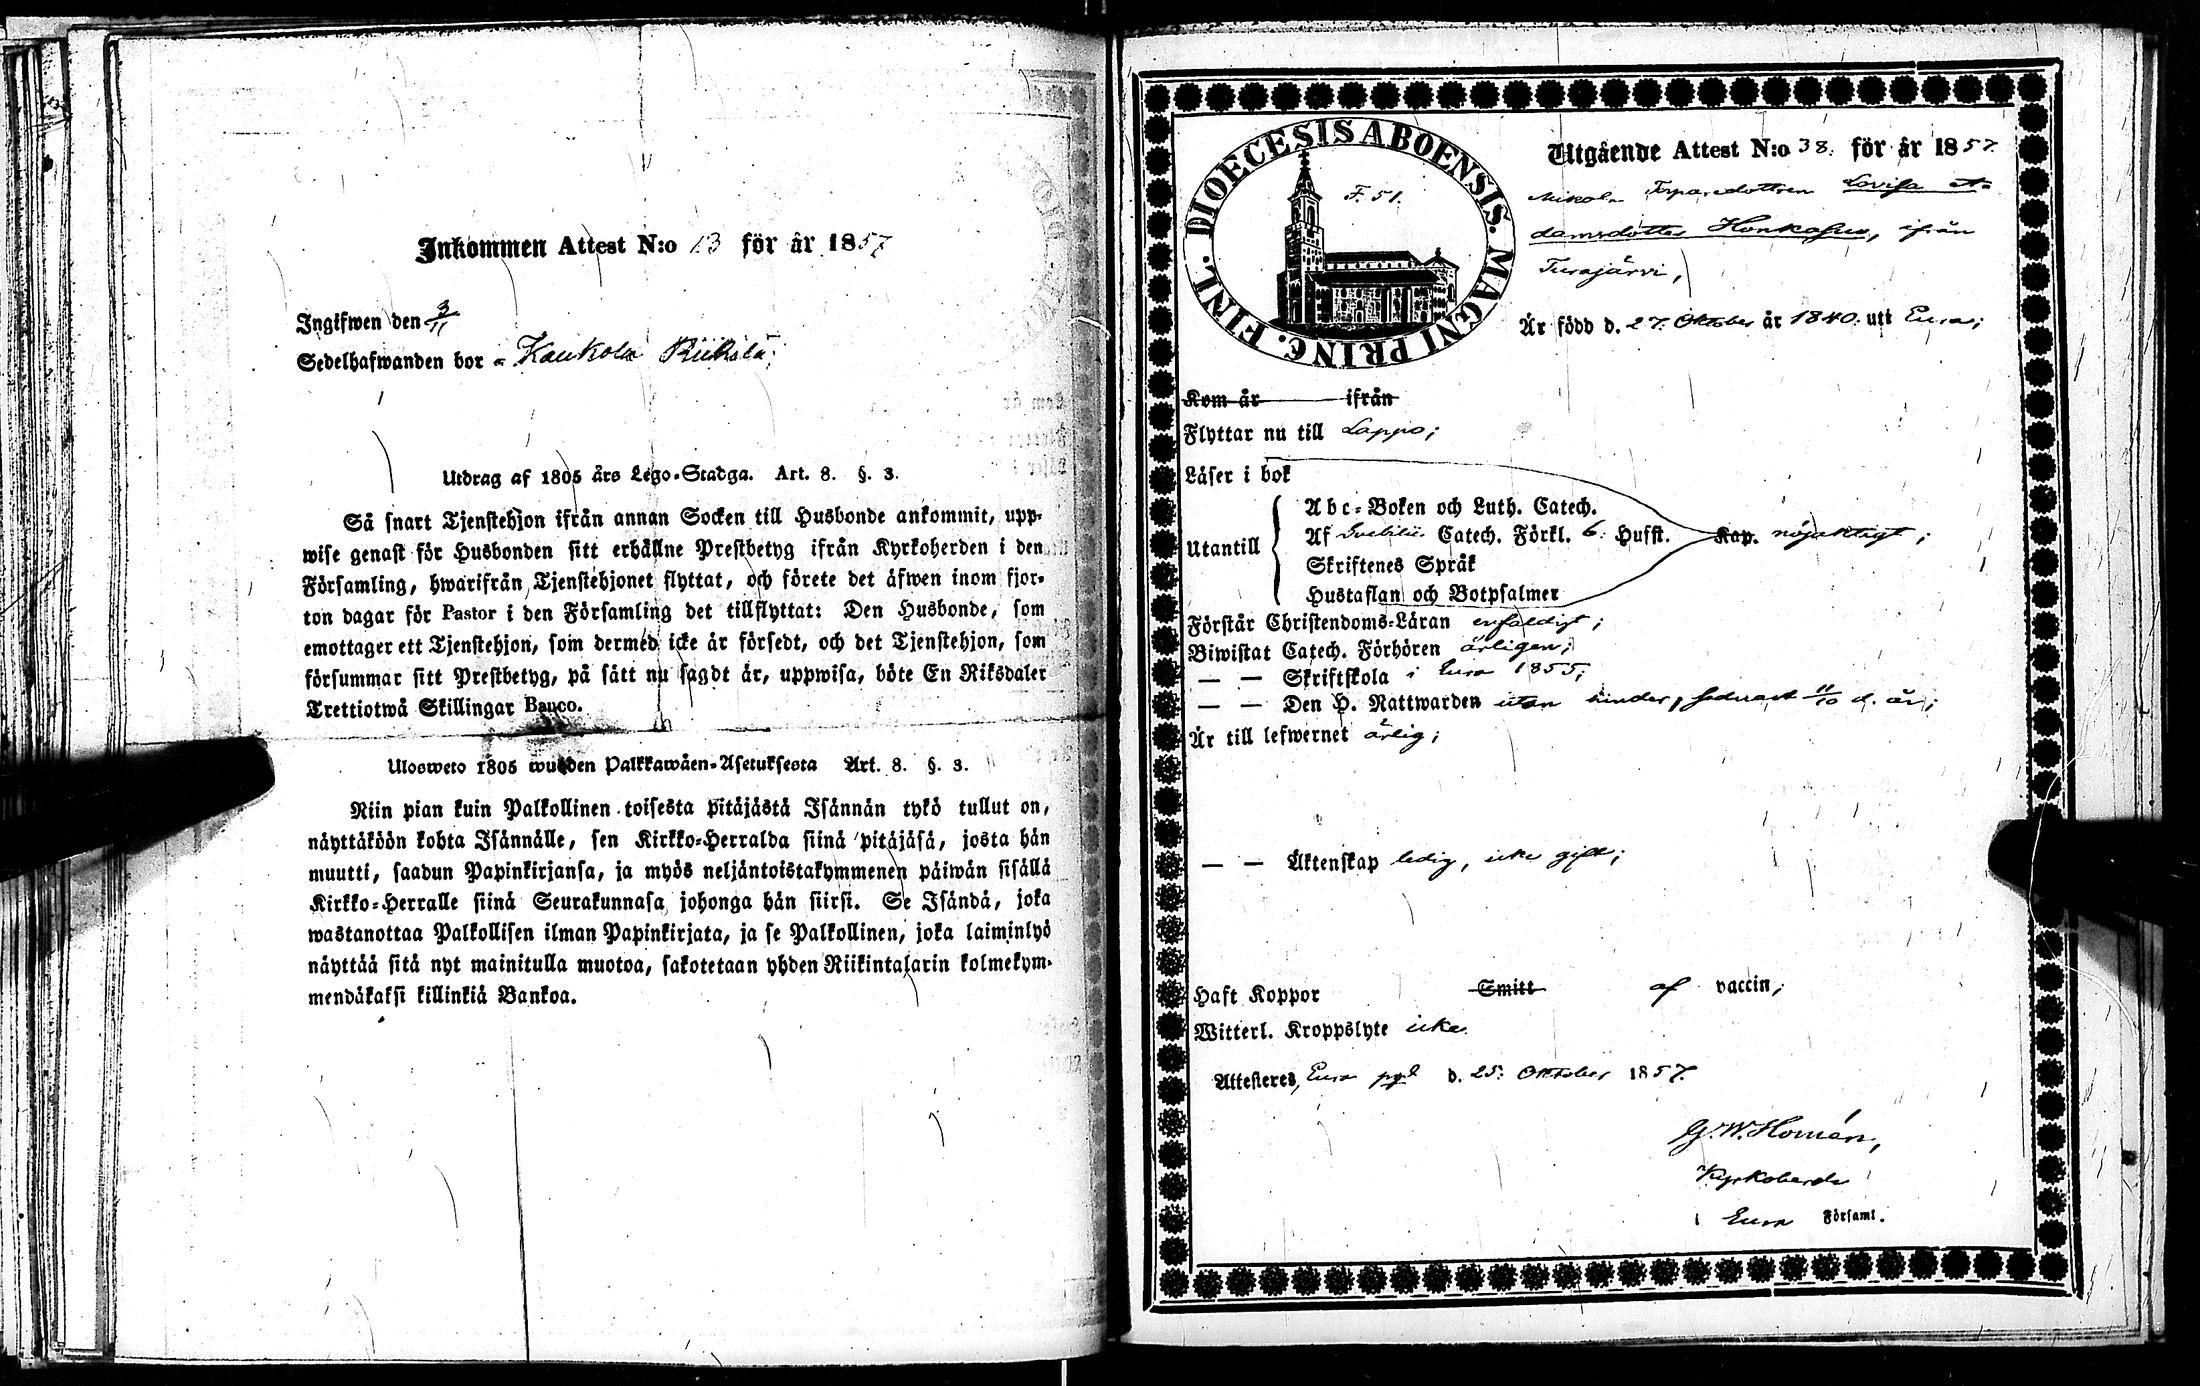 Inkommen Attest N:o 13 för år 1857
Ingifwen den 3/11
Sedelhafwanden bor - Kaukola Riikola;
Utdrag af 1805 års Lego-Stadga. Art. 8. §. 3.
Så snart Tjenstehjon ifrån annan Socken till Husbonde ankommit, upp-
wise genast för Husbonden sitt erhållne Prestbetyg ifrån Kyrkoherden i den
Församling, hwarifrån Tjenstehjonet flyttat, och förete det äfwen inom fjor-
ton dagar för Pastor i den Församling det tillflyttat: Den Husbonde, som
emottager ett Tjenstehjon, som dermed icke är försedt, och det Tjenstehjon, som
försummar sitt Prestbetyg, på sätt nu sagdt är, uppwisa, böte En Riksdaler
Trettiotwå Skillingar Banco.
Ulosweto 1805 wuoden Palkkawäen-Asetuksesta Art. 8. §. 3.
Niin pian kuin Palkollinen toisesta pitäjästä Isännän tykö tullut on,
näyttäköön kohta Isännälle, sen Kirkko-Herralda siinä pitäjäsä, josta hän
muutti, saadun Papinkirjansa, ja myös neljäntoistakymmenen päiwän sisällä
Kirkko-Herralle siinä Seurakunnasa johonga hän siirsi. Se Isändä, joka
wastanottaa Palkollisen ilman Papinkirjata, ja se Palkollinen, joka laiminlyö
näyttää sitä nyt mainitulla muotoa, sakotetaan yhden Riikintalarin kolmekym-
mendäkaksi killinkiä Bankoa.
DIOECESIS ABOENSIS. MAGNI PRINC. FINL.
F. 51.
Utgående Attest N:o 38. för år 1857.
Torparedottren Lovisa A-
damsdotter Honkasuo, ifrån
Turajärvi,
Är född d. 27. Oktober år 1840. uti Eura;
Kom år ifrån
Flyttar nu till Lappo;
Läser i bok
Utantill
Abc-Boken och Luth. Catech.
Af Svebilii Catech. Förkl. 6. Hufst. Kap. nöjaktigt;
Skriftenes Språk
Hustaflan och Botpsalmer
Förstår Christendoms-Läran enfaldigt;
Biwistat Catech. Förhören årligen;
— — Skriftskola i Eura 1855;
— — Den H. Nattwarden utan hinder, sednast 11/10 d. år;
Är till lefwernet ärlig;
— — Äktenskap ledig, icke gift;
Haft Koppor Smitt af vaccin;
Witterl. Kroppslyte icke.
Attesteres, Eura pgd d. 25. Oktober 1857.
G. W. Homén,
Kyrkoherde
i Eura Församl.